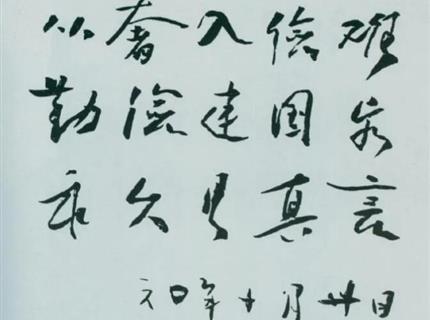 从奢入俭难
勤俭建国家
永久是真言
六〇年十月廿日